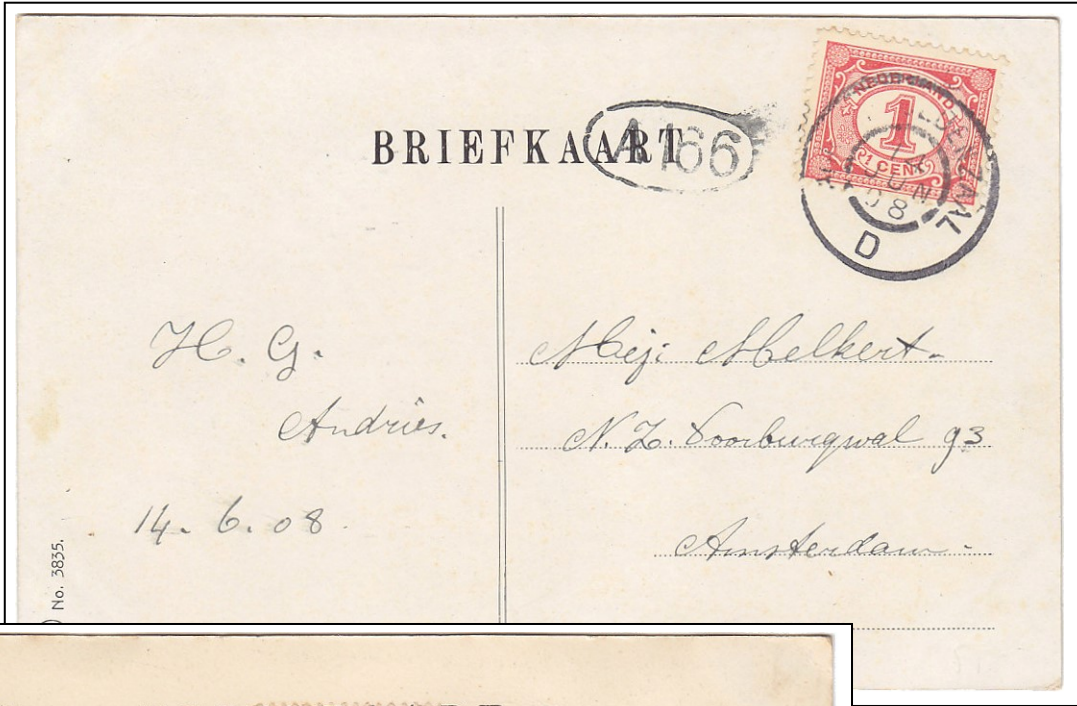 BRIEFKAART
A166
NEDERLAND
1
1 CENT
14
JUN
08
D
H. G.
Andries.
14. 6. 08
Mej: Melkert.
N. Z. Voorburgwal 93
Amsterdam.
No. 3835.